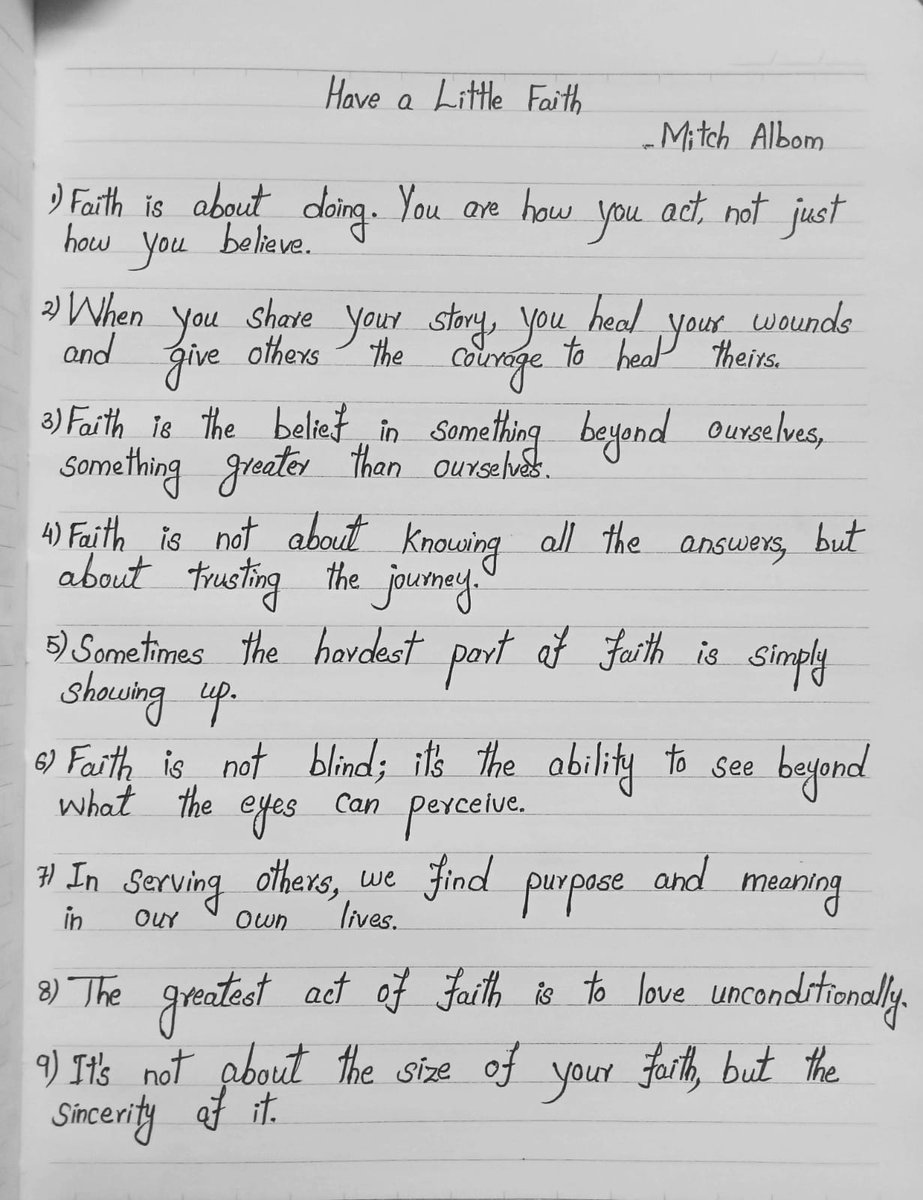 Have a Little Faith
- Mitch Albom
1) Faith is about doing. You are how you act, not just
how you believe.
2) When you share your story, you heal your wounds
and give others the courage to heal theirs.
3) Faith is the belief in something beyond ourselves,
something greater than ourselves.
4) Faith is not about knowing all the answers, but
about trusting the journey.
5) Sometimes the hardest part of faith is simply
showing up.
6) Faith is not blind; it's the ability to see beyond
what the eyes can perceive.
7) In serving others, we find purpose and meaning
in our own lives.
8) The greatest act of faith is to love unconditionally.
9) It's not about the size of your faith, but the
sincerity of it.